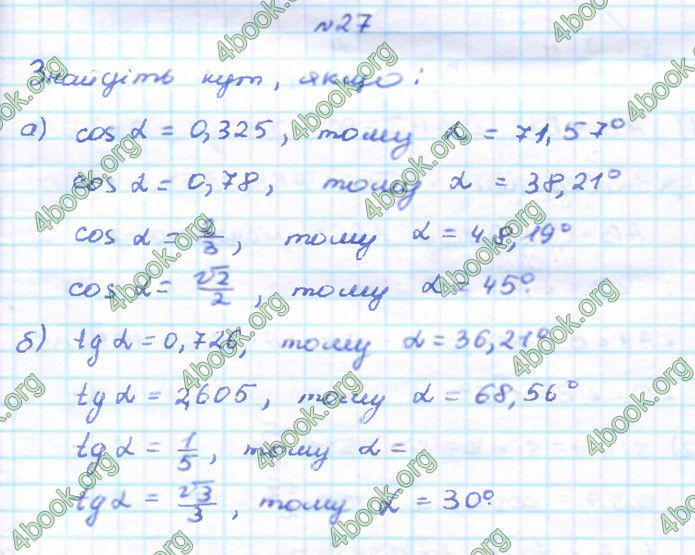 №27
Знайдіть кут, якщо:
а) cos α = 0,325, тому α = 71,57°
cos α = 0,78, тому α = 38,21°
cos α = 2/3, тому α = 48,19°
cos α = √2/2, тому α = 45°.
б) tg α = 0,726, тому α = 36,21°
tg α = 2,605, тому α = 68,56°
tg α = 1/5, тому α =
tg α = √3/3, тому α = 30°.
4book.org